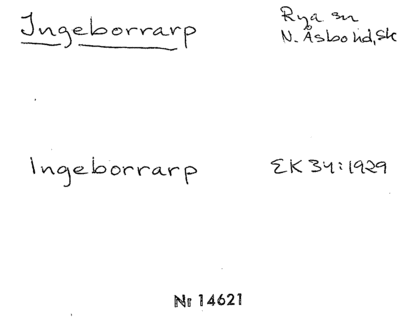 Ingeborrarp
Rya sn
N. Åsbo hd, Sk
Ingeborrarp
EK 34:1929
Nr 14621